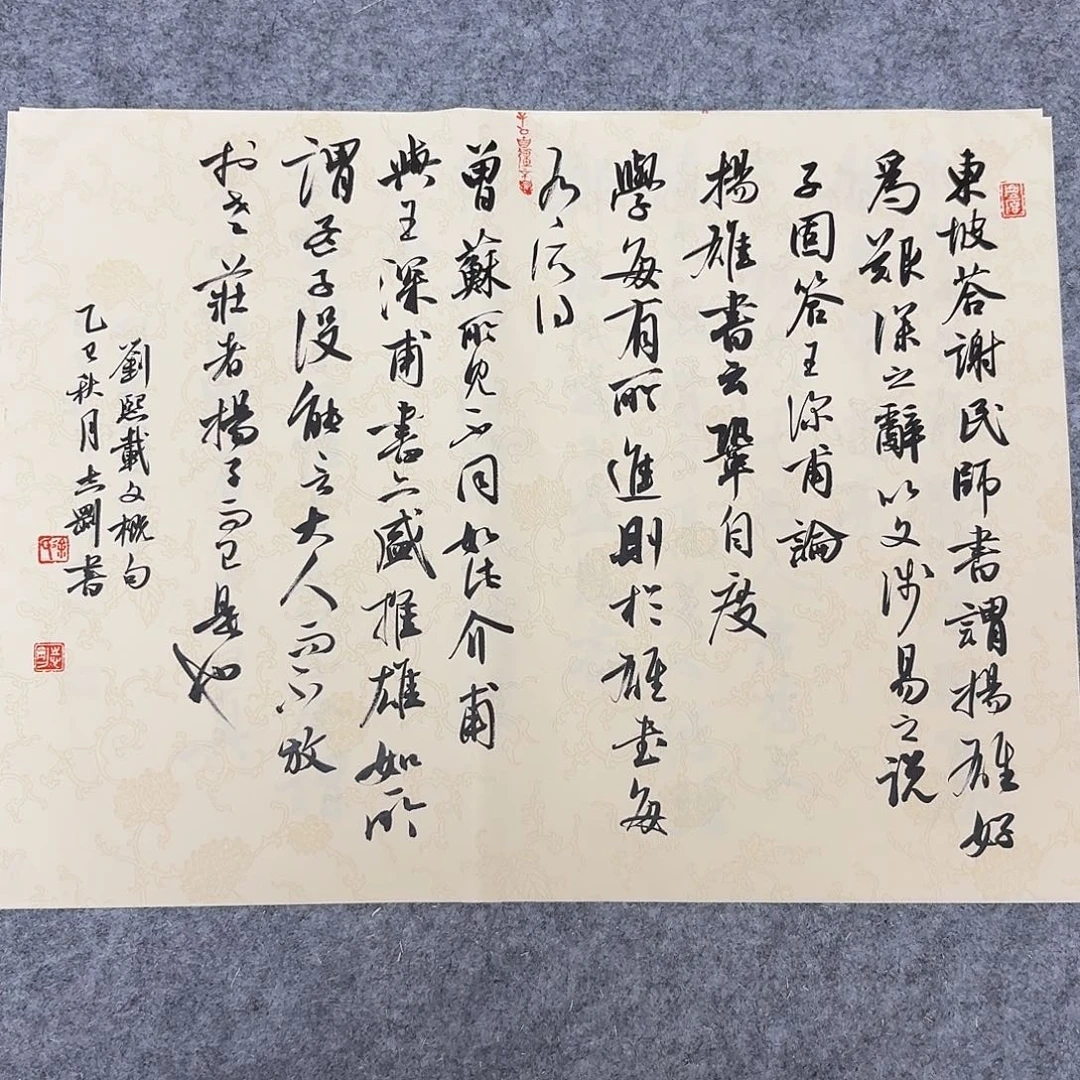 東坡荅謝民師書謂揚雄好
爲艱深之辭以文淺易之說
子固答王深甫論
揚雄書云鞏自度
學每有所進則於雄書每
有所得
曾蘇所見不同如此介甫
與王深甫書亦盛推雄如所
謂孟子没能言大人而不放
於老莊者揚子而已是也
劉熙載文概句
乙巳秋月志剛書